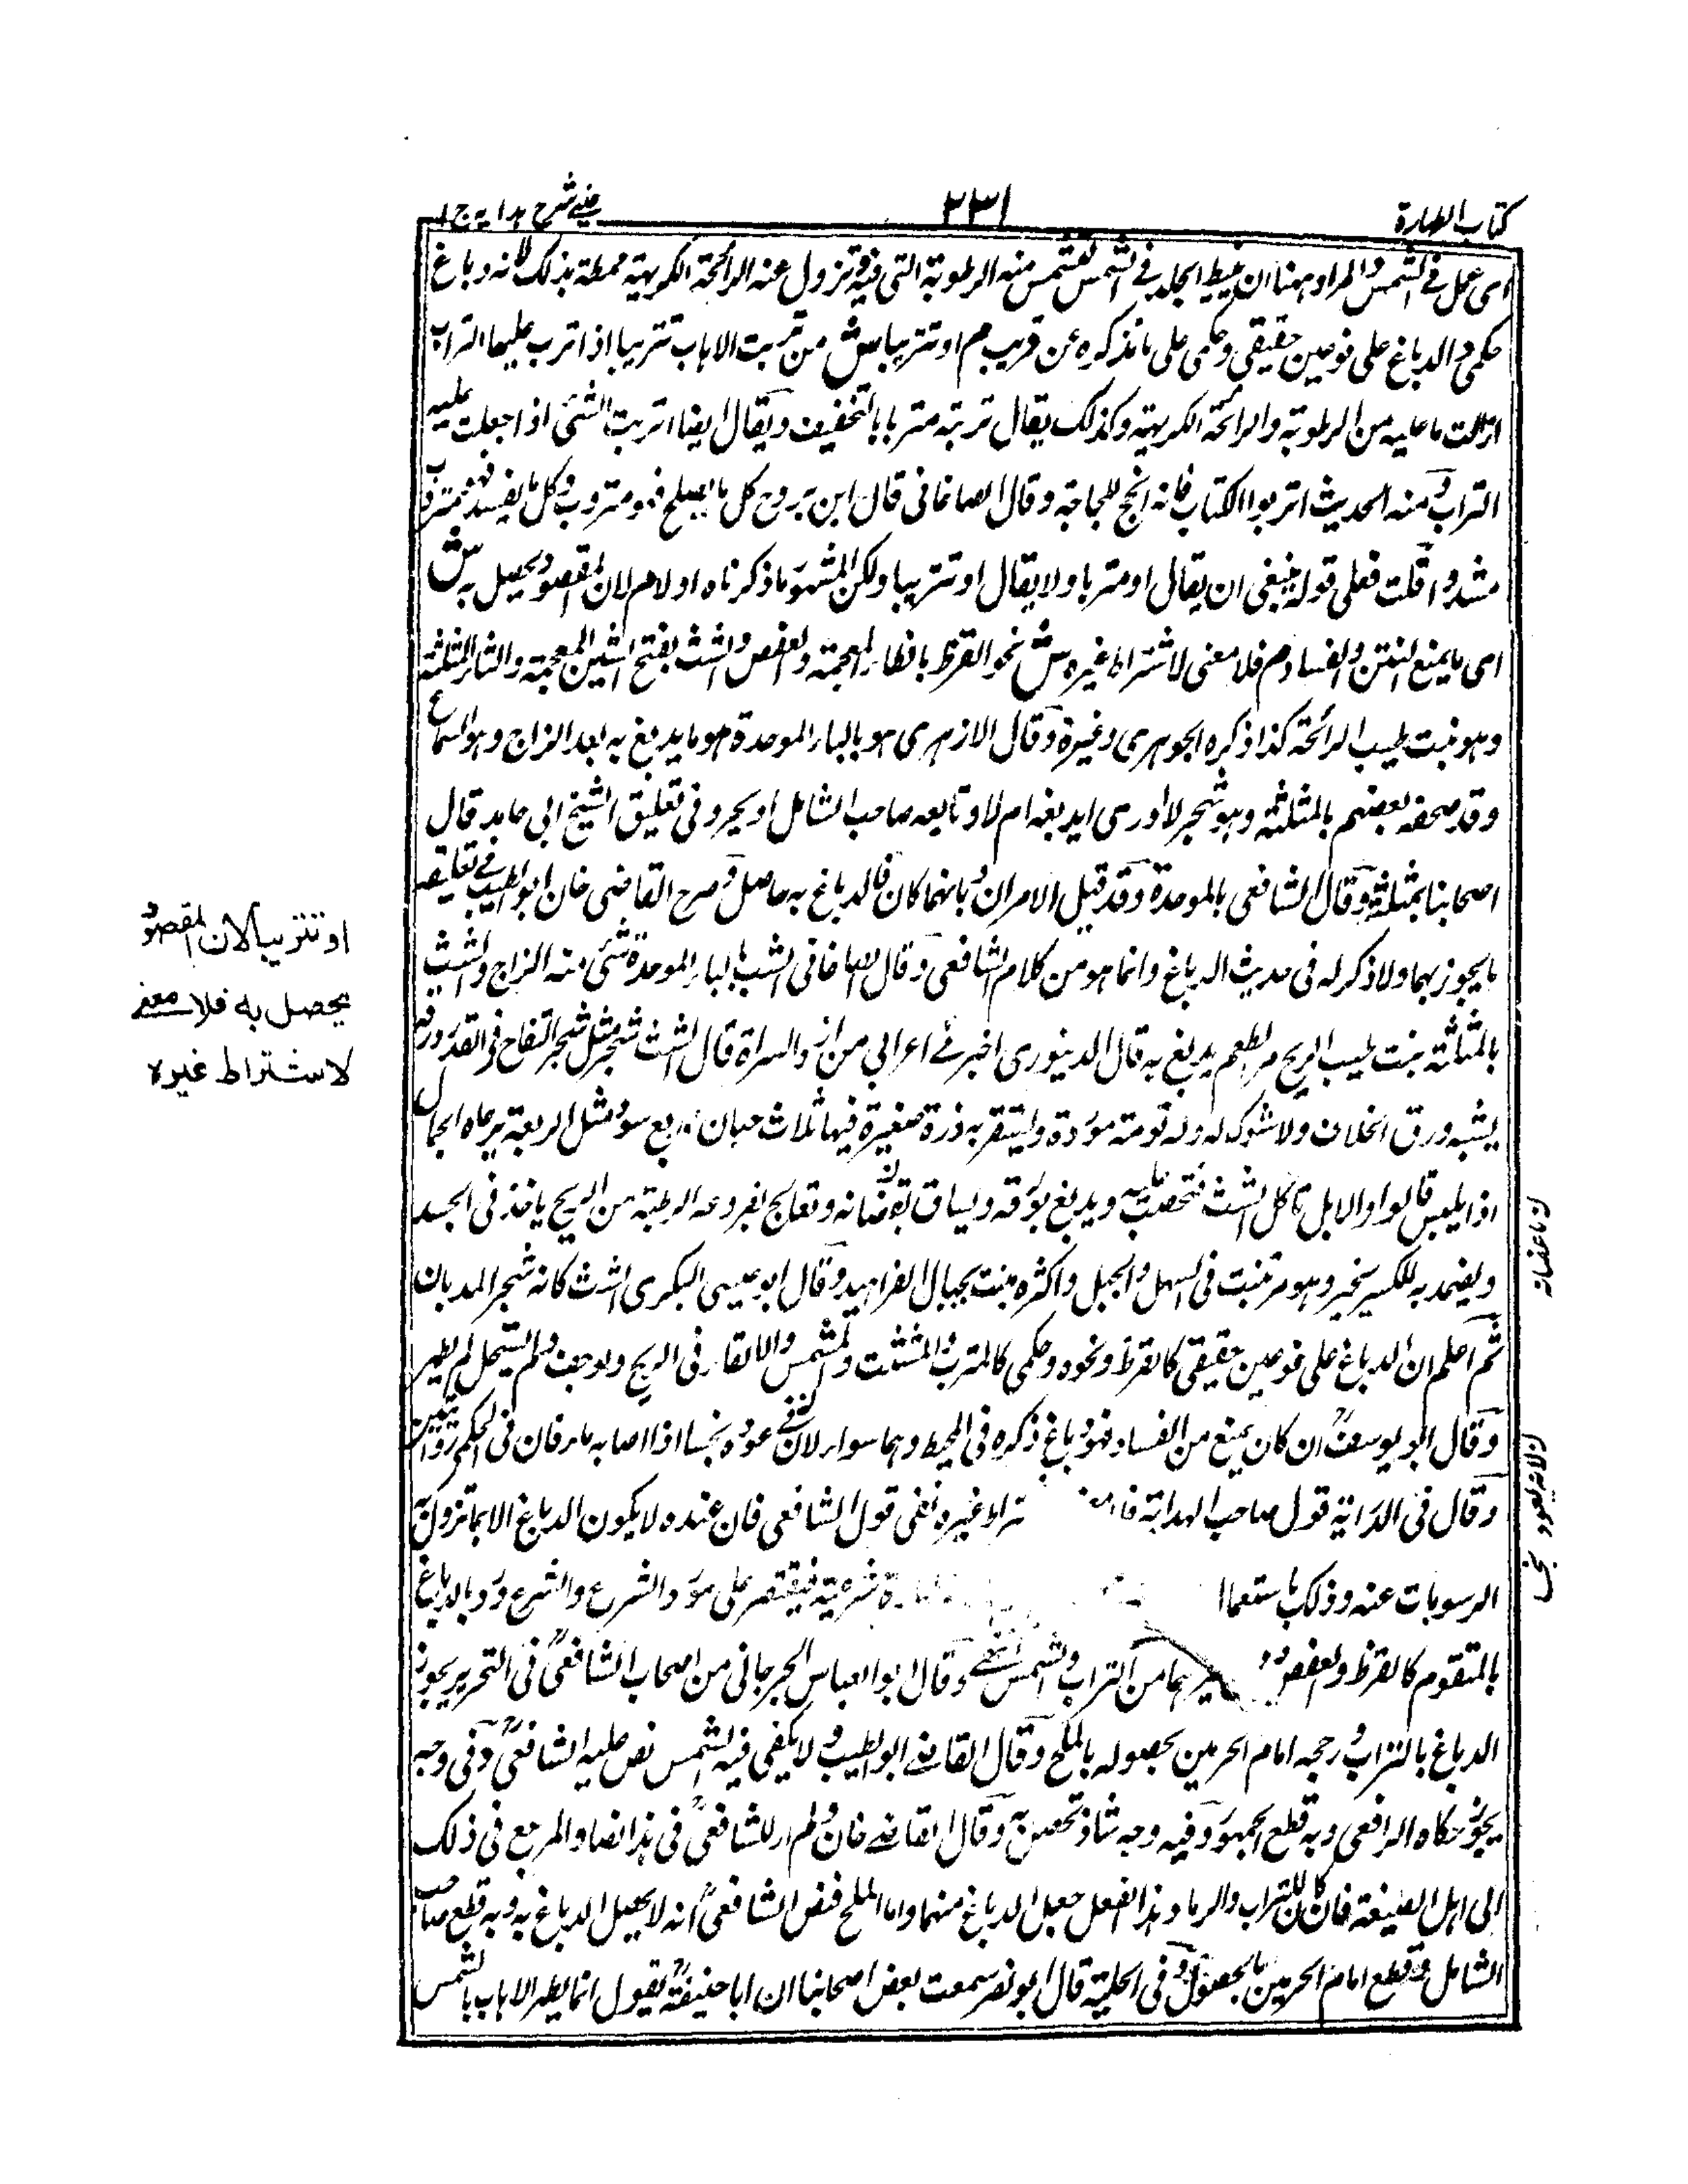 كتاب الطهارة
٢٣١
عيني شرح هدايه ج ١
اى عمل فى الشمس والمراد ههنا ان يبسط الجلد فى الشمس لتشمس منه الرطوبة التى فيه وتزول عنه الرائحة الكريهة فيطهر بذلك لانه دباغ
حكمى والدباغ على نوعين حقيقى وحكمى على ما نذكره عن قريب م او تتريبا ش من تربت الاهاب تتريبا اذا ترب عليها التراب
ازالت ما عليه من الرطوبة والرائحة الكريهة وكذلك يقال تربته متربا بالتخفيف ويقال ايضا اتربت الشئ اذا جعلت عليه
التراب ومنه الحديث اتربوا الكتاب فانه انجح للحاجة وقال الصاغانى قال ابن بزرج كل ما يصلح فهو متروب وكل ما يفسد فهو مترب
مشددا قلت فعلى قوله ينبغى ان يقال او متربا ولا يقال او تتريبا ولكن المشهور ما ذكرناه اولا م لان المقصود يحصل به ش
اى ما يمنع النتن والفساد م فلا معنى لاشتراط غيره ش نحو القرظ بالظاء المعجمة والعفص والشث بفتح الشين المعجمة والثاء المثلثة
وهو نبت طيب الرائحة كذا ذكره الجوهرى وغيره وقال الازهرى هو بالباء الموحدة هو ما يدبغ به بعد الزاج وهو السماع
وقد صحفه بعضهم بالمثلثة وهو شجر لا ادرى ايدبغ به ام لا وتابعه صاحب الشامل والبحر وفى تعليق الشيخ ابى حامد قال
اصحابنا بمثلثة وقال الشافعى بالموحدة وقد قيل الامران وبايهما كان فالدباغ به حاصل وصرح القاضى خان ابو الطيب فى تعليقه
بانه يجوز بهما ولا ذكر له فى حديث الدباغ وانما هو من كلام الشافعى وقال الصاغانى الشب بالباء الموحدة شئ منه الزاج والشث
بالمثلثة نبت طيب الريح مر الطعم يدبغ به قال الدينورى اخبرنى اعرابى من ازد السراة قال الشث شجر مثل شجر التفاح فى القدر ورقه
يشبه ورق الخلاف ولا شوك له وله توتة موردة وسنفة صغيرة فيها ثلاث حبات اربع سود مثل الربعة ترعاه الجبال
اذا يبس قالوا والابل تاكل الشث فتخصب عليه ويدبغ بورقه ويساق بقضبانه وتعالج بفروعه الرطبة من الريح ياخذ فى الجسد
ويضمد به للكسير فيجبر وهو مر ينبت فى السهل والجبل واكثره ينبت بجبال الفراهيد وقال ابو عيسى البكرى الشث كانه شجر المدبان
ثم اعلم ان الدباغ على نوعين حقيقى كالقرظ ونحوه وحكمى كالمترب والمشثث والمشمس والالقاء فى الريح ولو جف ولم يستحل لم يطهر
وقال ابو يوسفؒ ان كان يمنع من الفساد فهو دباغ ذكره فى المحيط وهما سواء الا فى عوده نجسا اذا اصابه ماء فان فى الحكمى روايتين
وقال فى الدراية قول صاحب الهداية فلا معنى تراط غيره نفى قول الشافعى فان عنده لا يكون الدباغ الا بما تزول به
الرسوبات عنه وذلك باستعما ة شرعية فيقتصر على مورد الشرع والشرع ورد بالدباغ
بالمتقوم كالقرظ والعفص دو ـيرهما من التراب والشمس انتهى وقال ابو العباس الجرجانى من اصحاب الشافعىؒ فى التحرير يجوز
الدباغ بالتراب ورجحه امام الحرمين بحصوله بالملح وقال القاضى ابو الطيب ولا يكفى فيه الشمس نص عليه الشافعىؒ وفى وجه
يجوز حكاه الرافعى وبه قطع الجمهور وفيه وجه شاذ تحصل به وقال القاضى خان ولم ار للشافعىؒ فى هذا نصا والمرجع فى ذلك
الى اهل الصنيعة فان كان للتراب والرماد هذا الفعل جعل الدباغ منهما واما الملح فنص الشافعىؒ انه لا يحصل الدباغ به وبه قطع صاحب
الشامل وقطع امام الحرمين بالحصول وفى الحلية قال ابو نصر سمعت بعض اصحابنا ان ابا حنيفةؒ يقول انما يطهر الاهاب بالشمس
او تتريبا لان المقصود
يحصل به فلا معنى
لاشتراط غيره